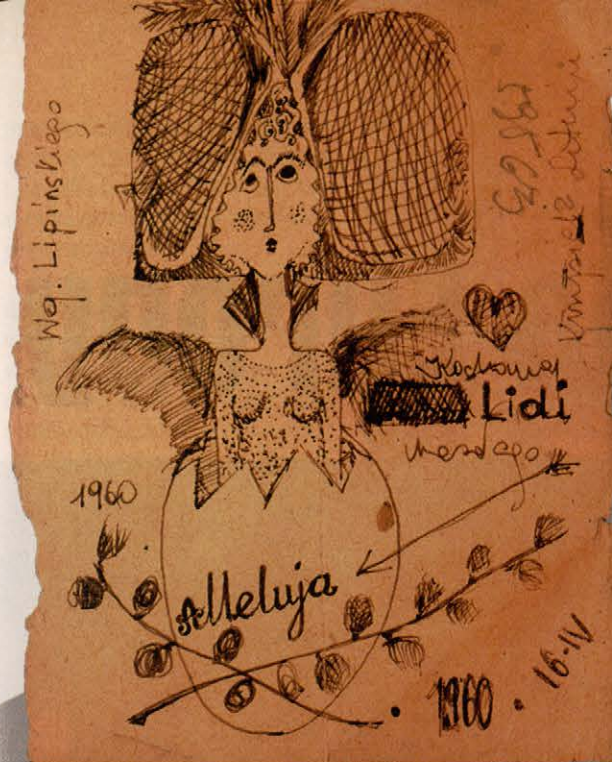 Wg. Lipińskiego
Kochanej
Lidi
1960
Alleluja
• 1960 • 16-IV